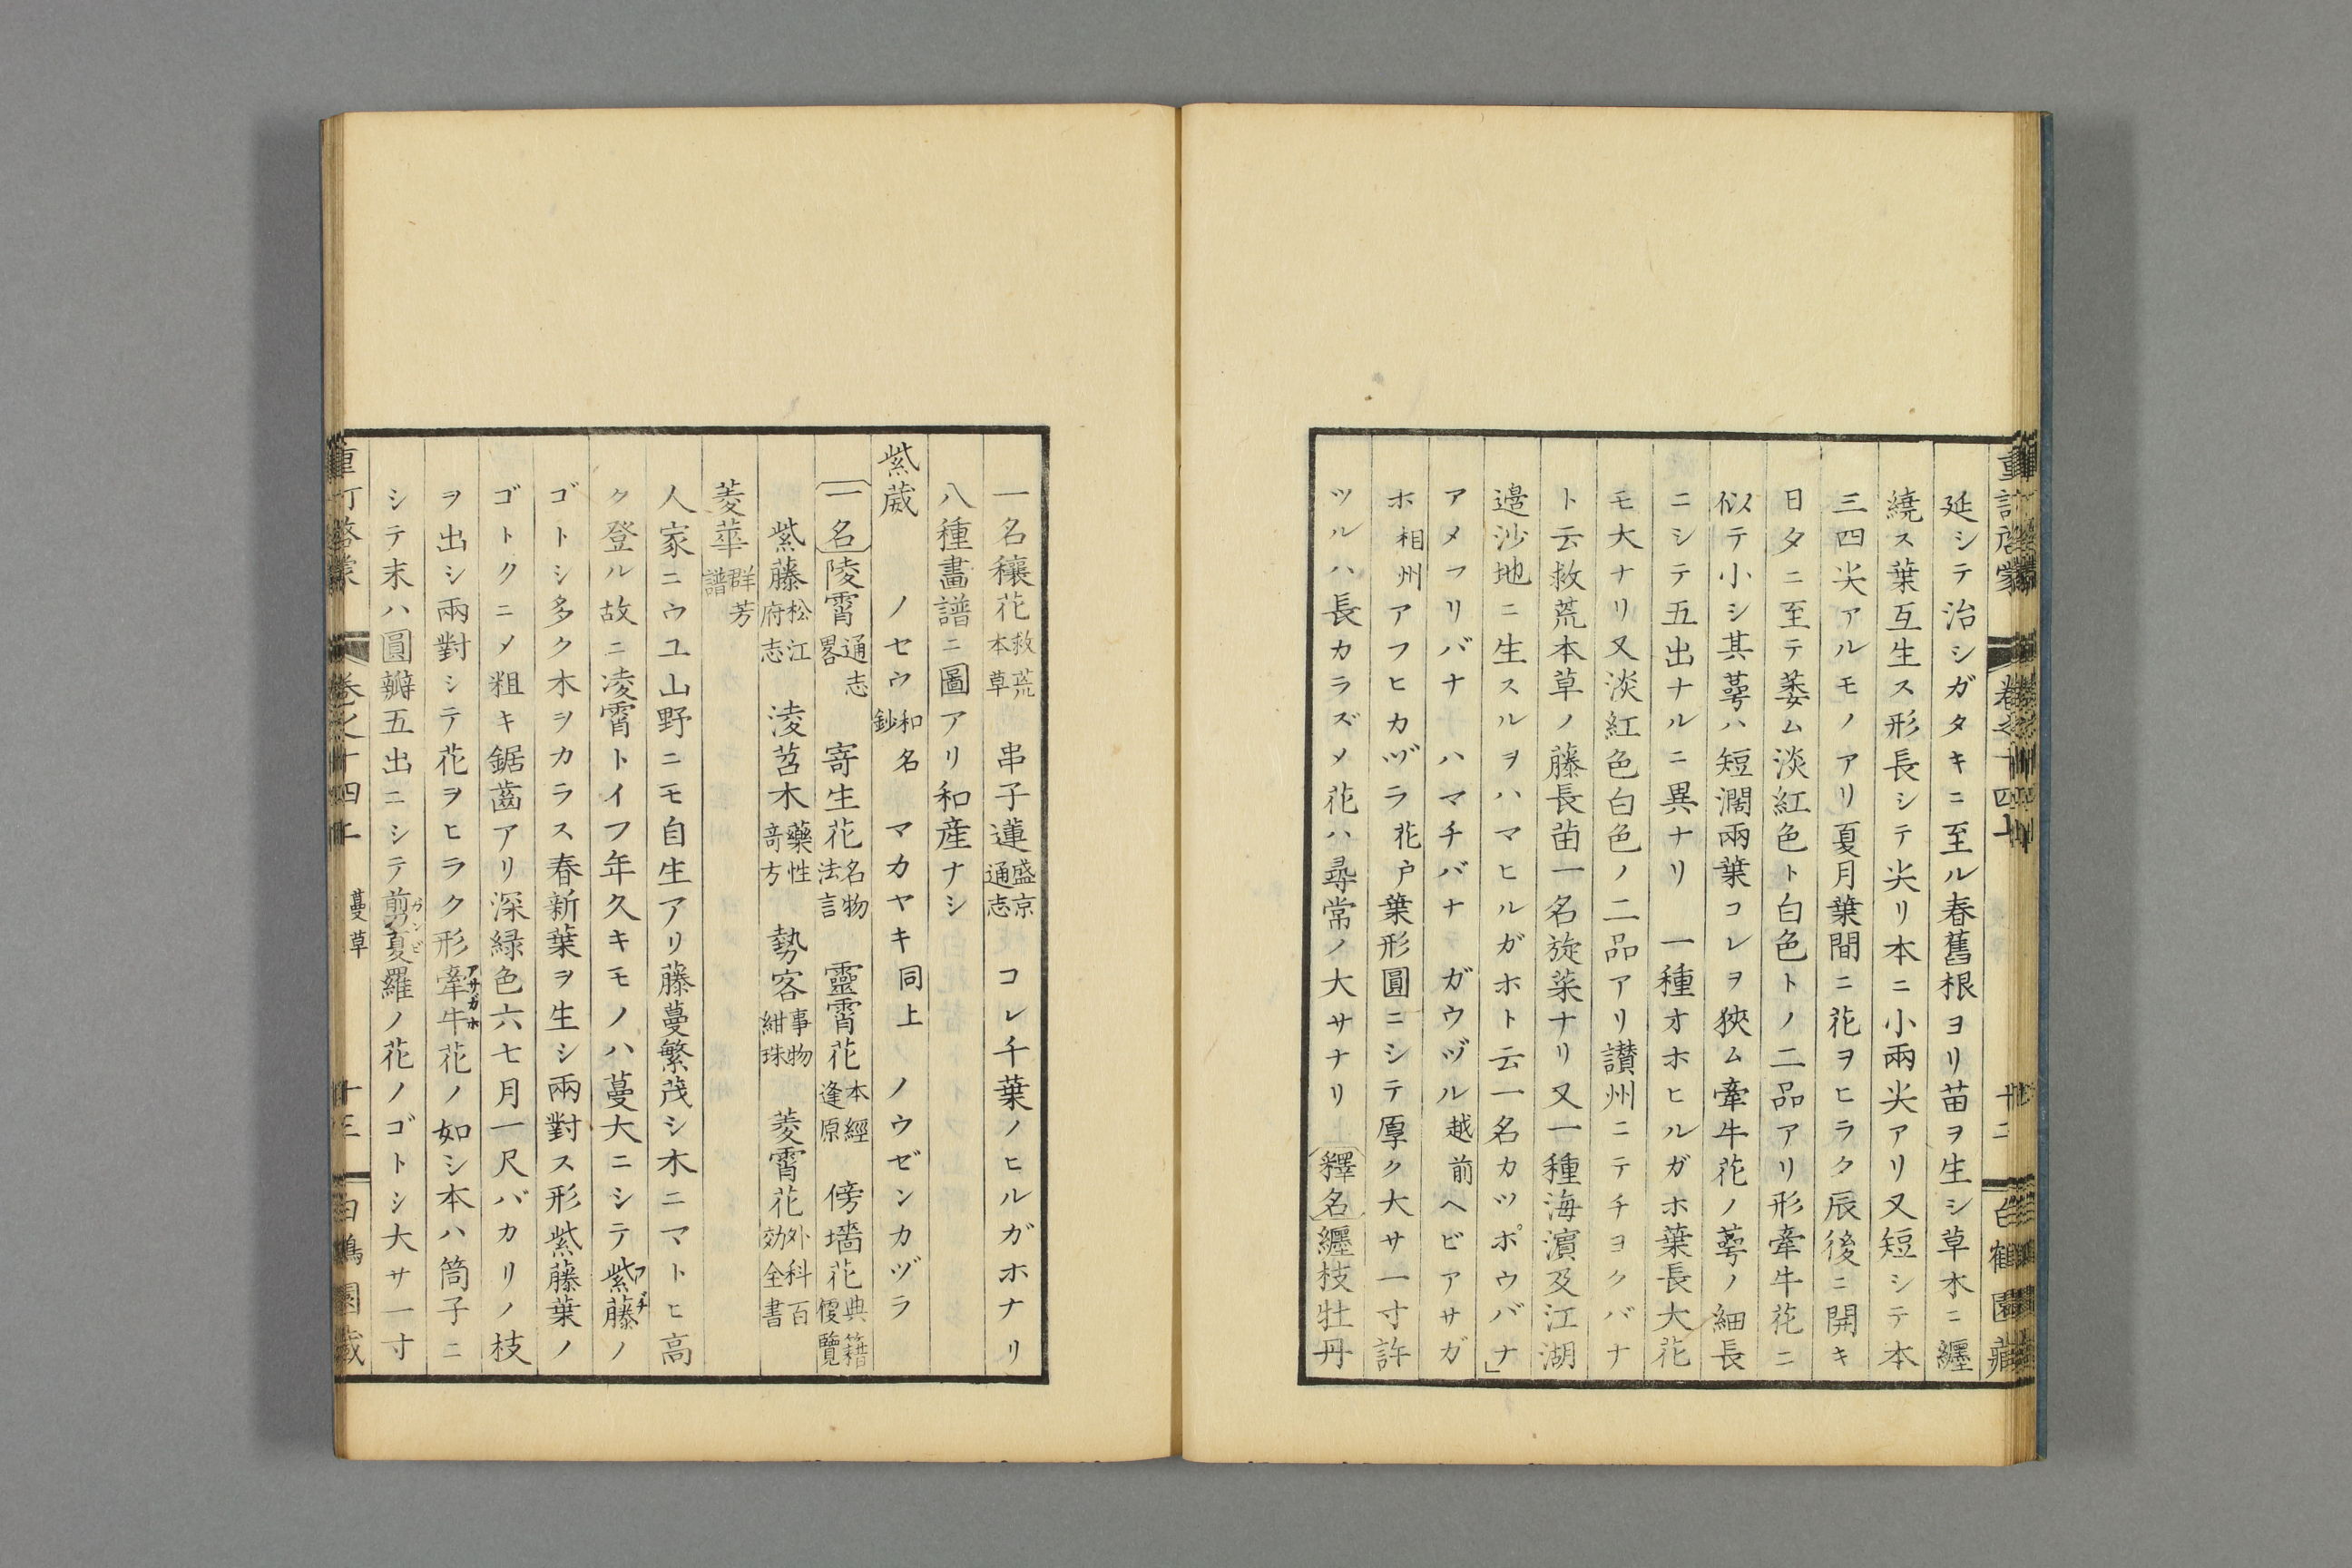 延シテ治シガタキニ至ル春舊根ヨリ苗ヲ生シ草木ニ纒
繞ス葉互生ス形長シテ尖リ本ニ小兩尖アリ又短シテ本
三四尖アルモノアリ夏月葉間ニ花ヲヒラク辰後ニ開キ
日タニ至テ萎ム淡紅色ト白色トノ二品アリ形牽牛花ニ
似テ小シ其蕚ハ短濶兩葉コレヲ狹ム牽牛花ノ蕚ノ細長
ニシテ五出ナルニ異ナリ 一種オホヒルガホ葉長大花
モ大ナリ又淡紅色白色ノ二品アリ讃州ニテチヨクバナ
ト云救荒本草ノ藤長苗一名旋菜ナリ又一種海濵及江湖
邉沙地ニ生スルヲハマヒルガホト云一名カツポウバナ」
アメフリバナ ハマチバナ ガウヅル越前ヘビアサガ
ホ相州アフヒカヅラ花戸葉形圓ニシテ厚ク大サ一寸許
ツルハ長カラズメ花ハ尋常ノ大サナリ 釋名纒枝牡丹
一名穰花救荒本草 串子蓮盛京通志 コレ千葉ノヒルガホナリ
八種畵譜ニ圖アリ和産ナシ
紫葳 ノセウ和名鈔 マカヤキ同上 ノウゼンカヅラ
一名 陵霄通志畧 寄生花名物法言 靈霄花本經逢原 傍墻花典籍便覽
紫藤松江府志 淩苕木藥性奇方 勢客事物紺珠 菱霄花外科百効全書
菱華群芳譜
人家ニウユ山野ニモ自生アリ藤蔓繁茂シ木ニマトヒ高
ク登ル故ニ凌霄トイフ年久キモノハ蔓大ニシテ紫藤フヂノ
ゴトシ多ク木ヲカラス春新葉ヲ生シ兩對ス形紫藤葉ノ
ゴトクニメ粗キ鋸齒アリ深緑色六七月一尺バカリノ枝
ヲ出シ兩對シテ花ヲヒラク形牽牛アサガホ花ノ如シ本ハ筒子ニ
シテ末ハ圓瓣五出ニシテ剪夏羅ガンピノ花ノゴトシ大サ一寸
蔓草
十三